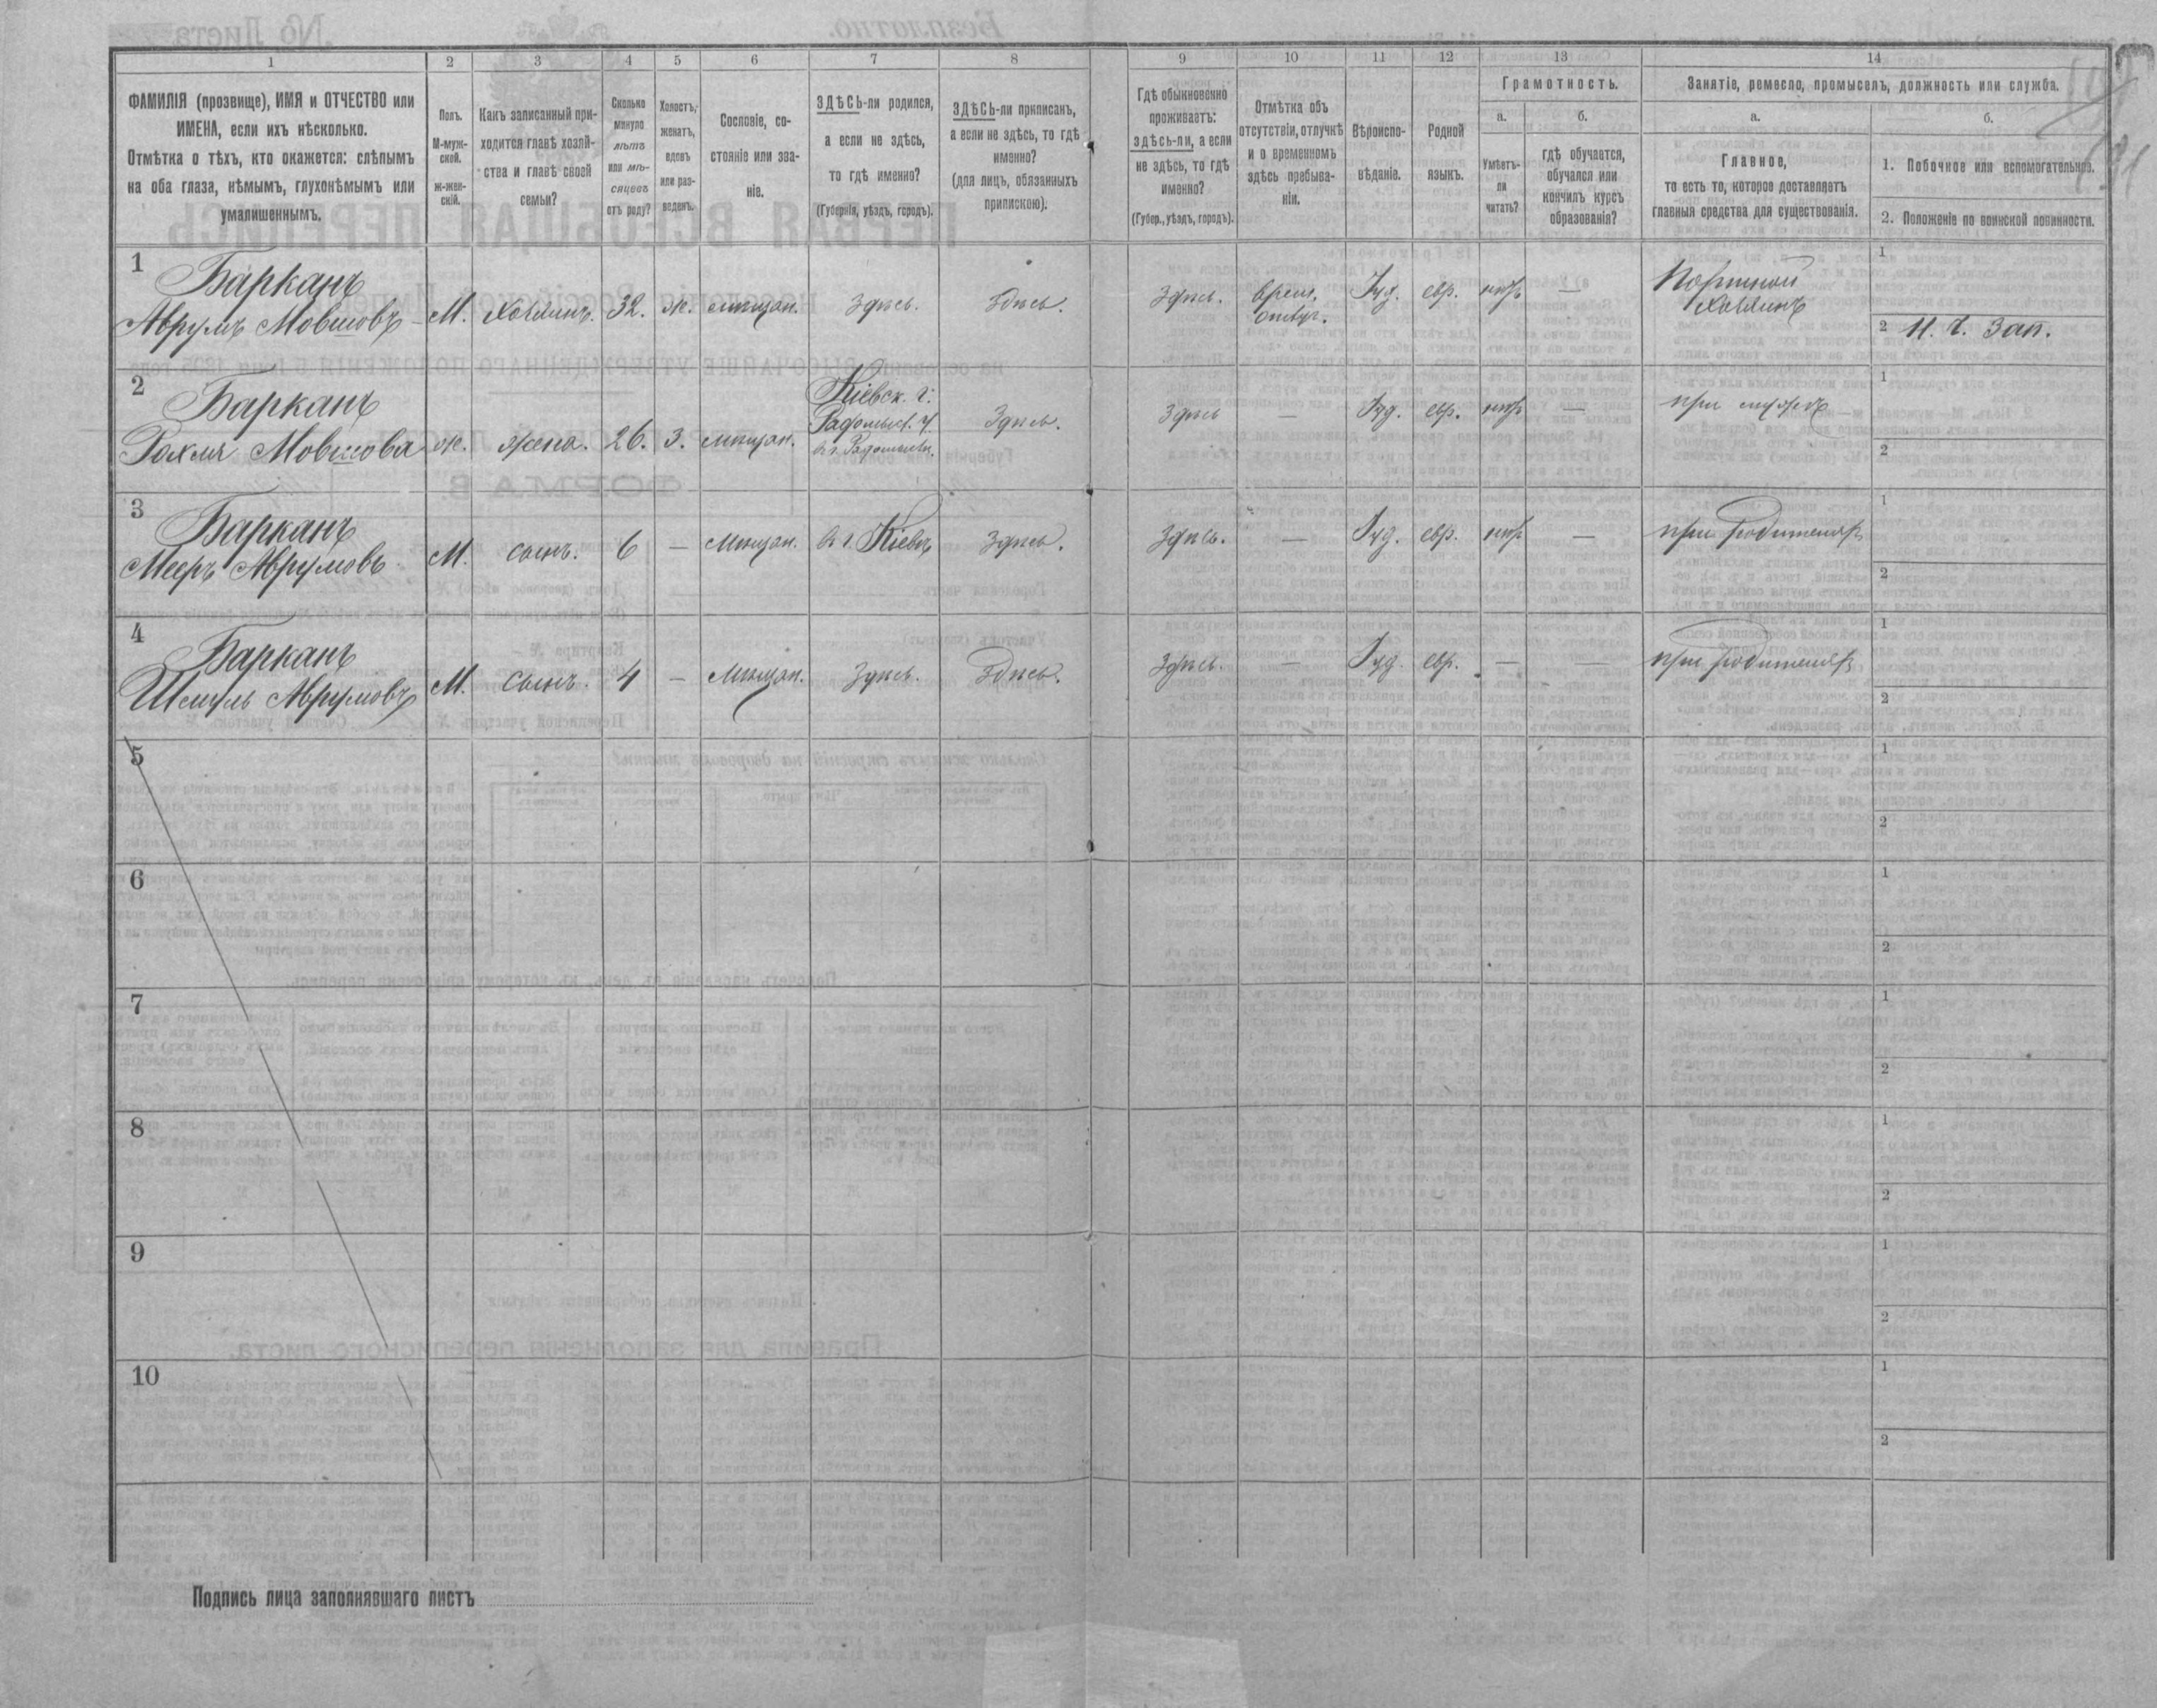 1 2 3 4 5 6 7 8 9 10 11 12 13 14
ФАМИЛІЯ (прозвище), ИМЯ и ОТЧЕСТВО или
ИМЕНА, если ихъ нѣсколько.
Отмѣтка о тѣхъ, кто окажется: слѣпымъ
на оба глаза, нѣмымъ, глухонѣмымъ или
умалишеннымъ.
Полъ.
М-муж-
ской.
ж-жен-
скій.
Какъ записанный при-
ходится главѣ хозяй-
ства и главѣ своей
семьи?
Сколько
минуло
лѣтъ
или мѣ-
сяцевъ
отъ роду?
Холостъ,
женатъ,
вдовъ
или раз-
веденъ.
Сословіе, со-
стояніе или зва-
ніе.
ЗДѢСЬ-ли родился,
а если не здѣсь,
то гдѣ именно?
(Губернія, уѣздъ, городъ).
ЗДѢСЬ-ли приписанъ,
а если не здѣсь, то гдѣ
именно?
(для лицъ, обязанныхъ
припискою).
Гдѣ обыкновенно
проживаетъ:
здѣсь-ли, а если
не здѣсь, то гдѣ
именно?
(Губер., уѣздъ, городъ).
Отмѣтка объ
отсутствіи, отлучкѣ
и о временномъ
здѣсь пребыва-
ніи.
Вѣроиспо-
вѣданіе.
Родной
языкъ.
Грамотность.
а.
Умѣетъ-
ли
читать?
б.
гдѣ обучается,
обучался или
кончилъ курсъ
образованія?
Занятіе, ремесло, промыселъ, должность или служба.
а.
Главное,
то есть то, которое доставляетъ
главныя средства для существованія.
б.
1. Побочное или вспомогательное.
2. Положеніе по воинской повинности.
1 Барканъ
Аврумъ Мовшовъ - М. хозяинъ. 32. ж. мѣщан. Здѣсь. Здѣсь. Здѣсь. врем. отлуч. Іуд. евр. нѣтъ — Портной хозяинъ
1
2 Н. ч. Зап.
2 Барканъ
Рахля Мовшова ж. жена. 26. з. мѣщан. Кіевск. г. Радомысл. у. в г. Радомыслѣ. Здѣсь. Здѣсь — Іуд. евр. нѣтъ — при мужѣ
1
2
3 Барканъ
Мееръ Аврумовъ М. сынъ. 6 — Мѣщан. в г. Кіевѣ Здѣсь. Здѣсь. — Іуд. евр. нѣтъ — при родителяхъ
1
2
4 Барканъ
Шмуль Аврумовъ М. сынъ. 4 — Мѣщан. Здѣсь. Здѣсь. Здѣсь. — Іуд. евр. — — при родителяхъ
1
2
5
1
2
6
1
2
7
1
2
8
1
2
9
1
2
10
1
2
Подпись лица заполнявшаго листъ